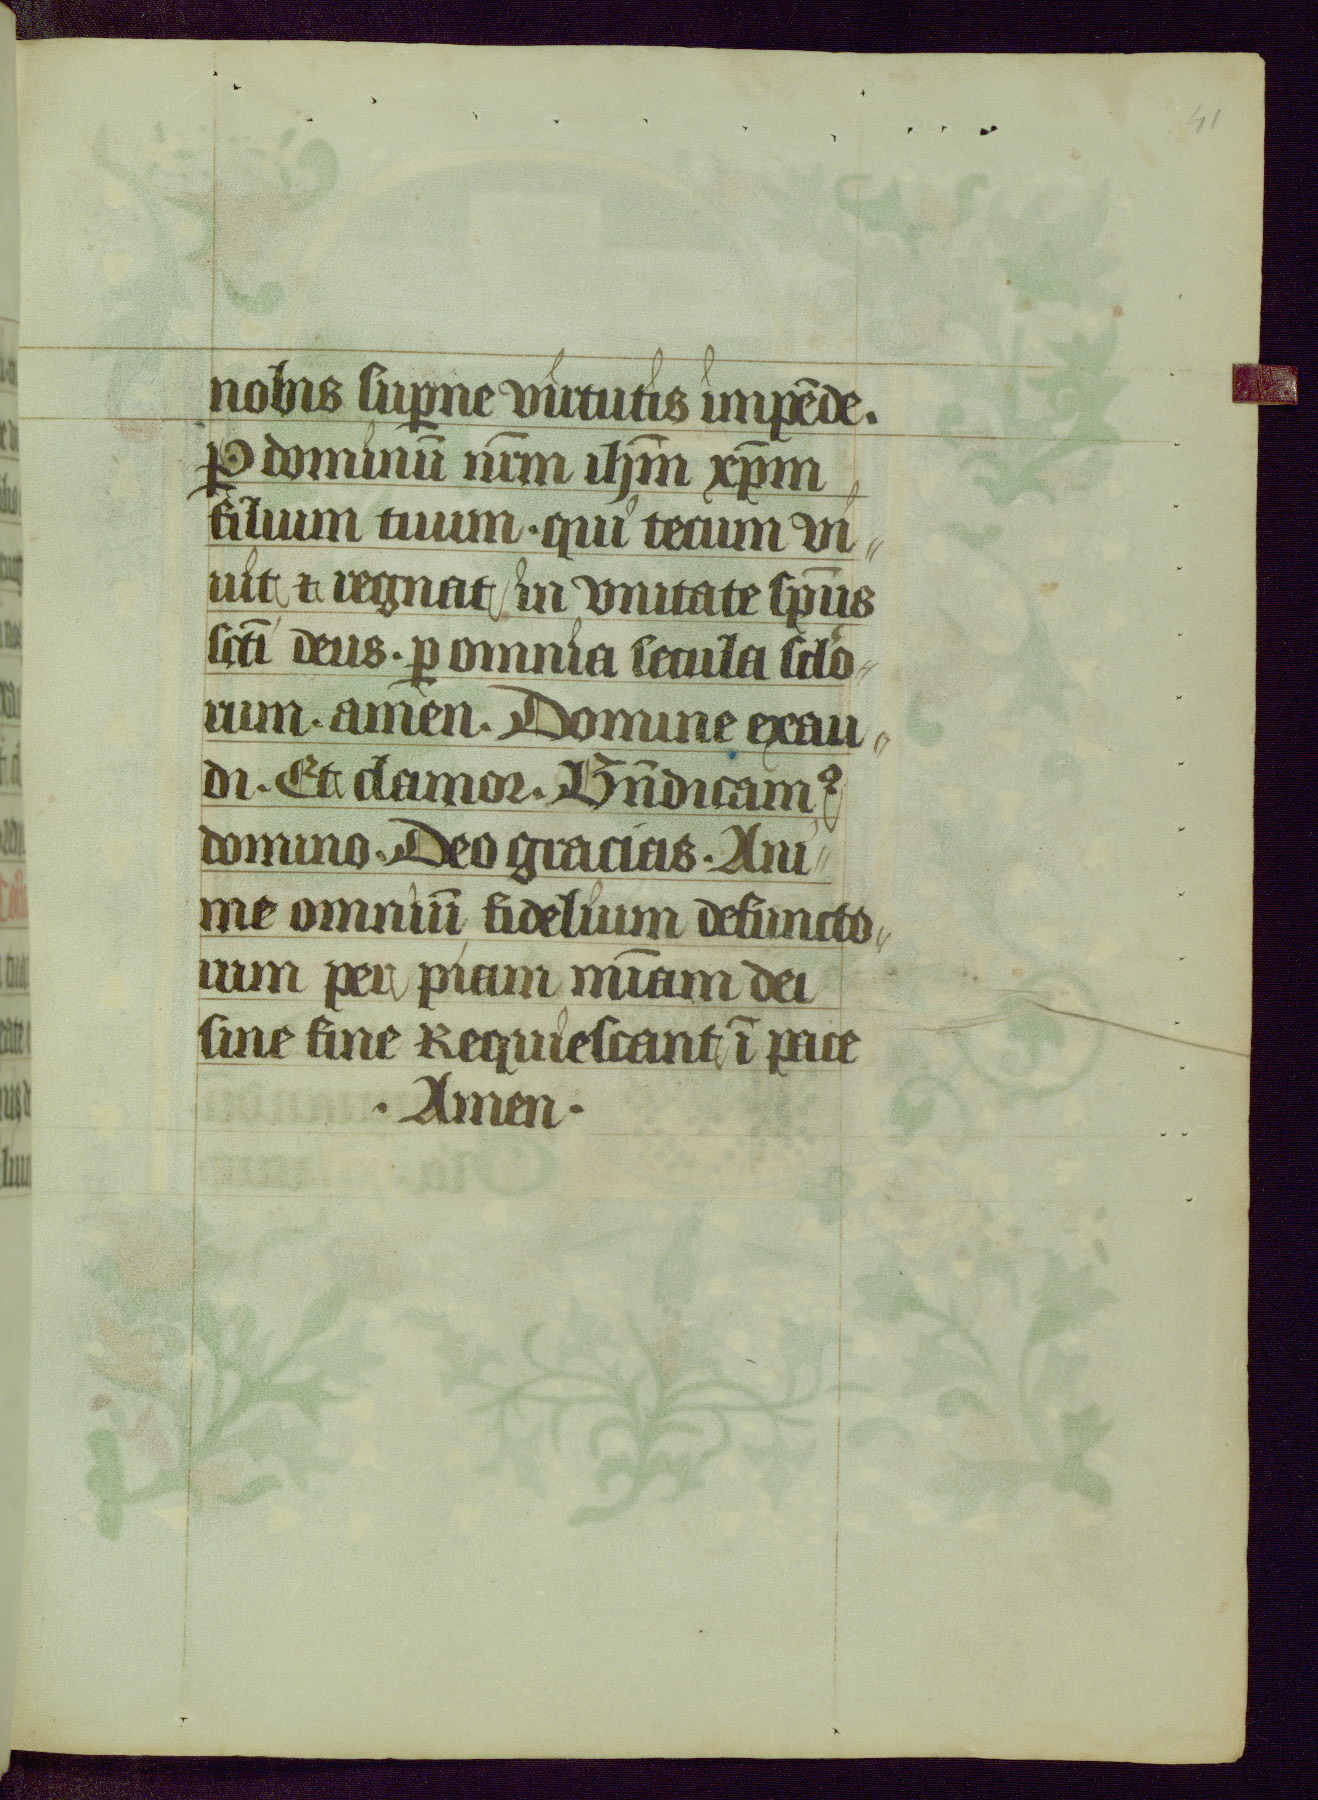 41
nobis sup̲ne virtutis impēde.
P̲ dominū nr̄m ihm̄ xp̄m
filium tuum · qui tecum vi〃
uit ⁊ regnat in vnitate sp̄us
sct̄i deus · ꝑ omnia secula sclo〃
rum · amen. Domine exau〃
di · Et clamor. Bn̄dicamꝰ
domino · Deo gracias · Ani〃
me omniū fidelium defuncto〃
rum per piam mīam dei
sine fine Requiescant ī pace
· Amen ·